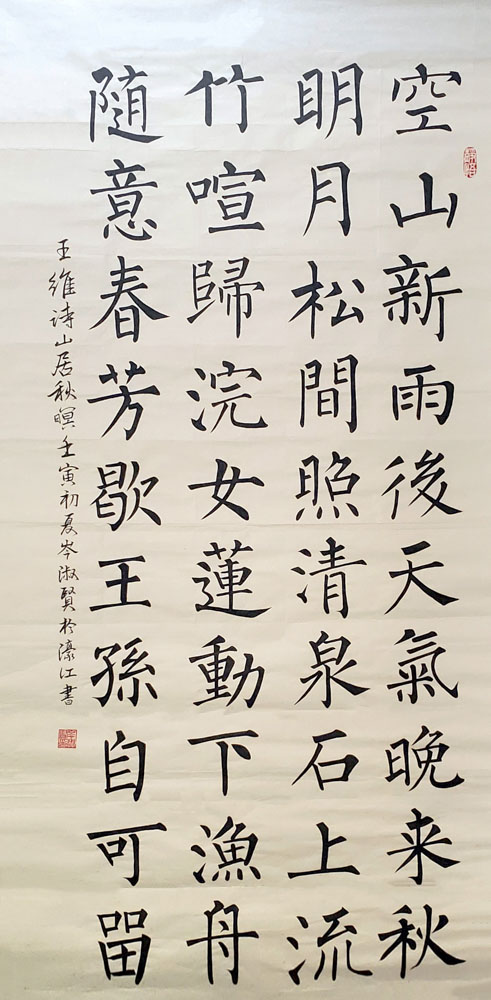 空山新雨後天氣晚来秋
明月松間照清泉石上流
竹喧歸浣女蓮動下漁舟
随意春芳歇王孫自可畱
王維诗山居秋暝壬寅初夏岑淑賢於濠江書